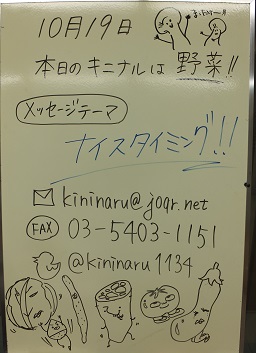 10月19日
本日のキニナルは 野菜!!
メッセージテーマ
ナイスタイミング!!
kininaru@joqr.net
FAX 03-5403-1151
@kininaru1134